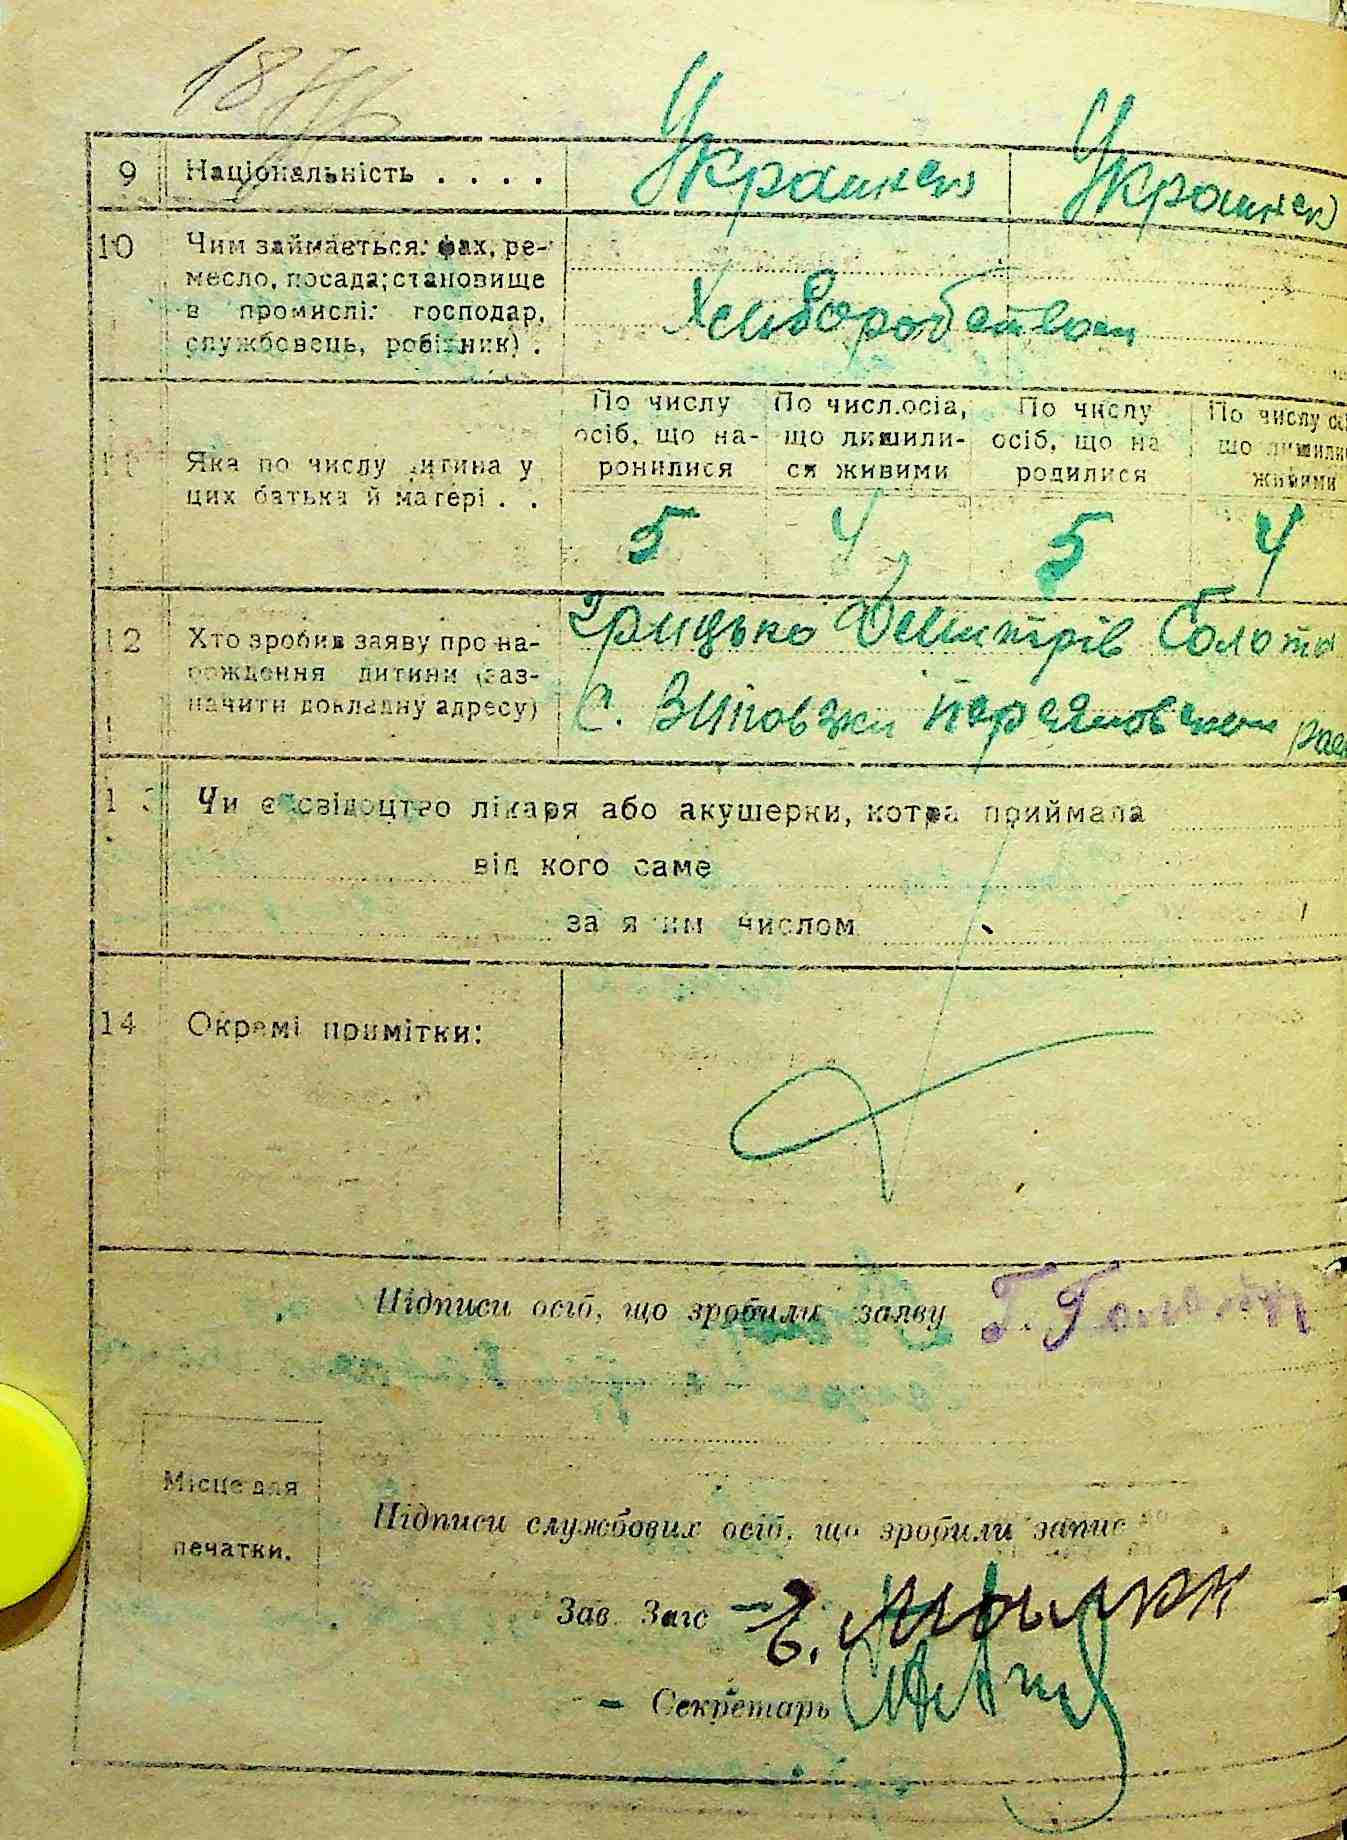 18
9 Національність . . . .
Украинец Украинец
10 Чим займається: фах, ре-
месло, посада; становище
в промислі: господар,
службовець, робітник) .
Хлиборобством
По числу осіб, що на- ронилися
По числ.осіа, що лишили- ся живими
По числу осіб, що на родилися
По числу ос що лишили живими
11 Яка по числу дитина у
цих батька й матері . .
5 4 5 4
12 Хто зробив заяву про на-
рождення дитини (заз-
начити докладну адресу)
Грицько Дмитрів Голота
с.
13 Чи є свідоцтво лікаря або акушерки, котра приймала
від кого саме
за яким числом
14 Окремі примітки:
Підписи осіб, що зробили заяву Г. Голота
Місце для
печатки.
Підписи службових осіб, що зробили запис
Зав. Загс
Секретарь